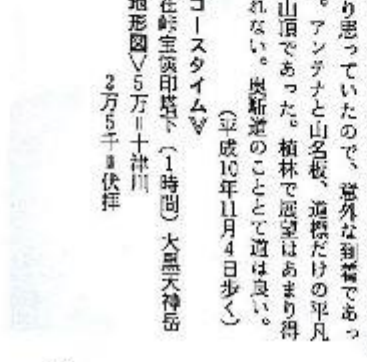 り思っていたので、意外な到着であっ
。アンテナと山名板、道標だけの平凡
山頂であった。植林で展望はあまり得
れない。奥駈道のこととて道は良い。
(平成10年11月4日歩く)
コースタイム∨
在峠宝篋印塔下(1時間)大黒天神岳
地形図∨5万=十津川
2万5千=伏拝